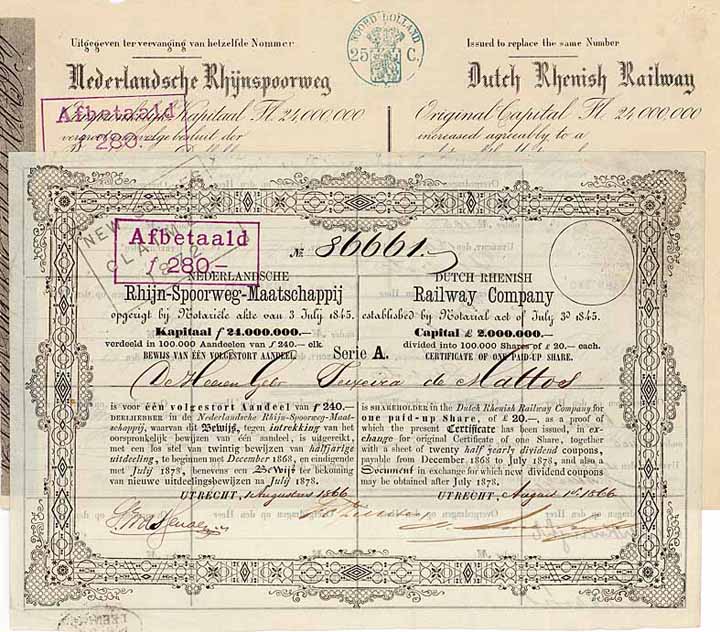 NOORD HOLLAND
25 C.
Uitgegeven ter vervanging van hetzelfde Nommer
Nederlandsche Rhijnspoorweg
Kapitaal Fl. 24,000,000
besluit der
Afbetaald
280.
Issued to replace the same Number
Dutch Rhenish Railway
Original Capital Fl. 24,000,000
increased agreably to a
NEW
CLAIM
Afbetaald
f 280.-
№ 86661.
NEDERLANDSCHE
Rhijn-Spoorweg-Maatschappij
opgerigt bij Notariële akte van 3 July 1845.
Kapitaal f 24.000.000.—
verdeeld in 100.000 Aandeelen van f 240.— elk.
BEWIJS VAN ÉÉN VOLGESTORT AANDEEL.
DUTCH RHENISH
Railway Company
established by Notarial act of July 3d 1845.
Capital £ 2.000.000.—
divided into 100.000 Shares of £ 20.— each.
CERTIFICATE OF ONE PAID-UP SHARE.
Serie A.
De Heeren Gebr Teixeira de Mattos
is voor één volgestort Aandeel van f 240.—
DEELHEBBER in de Nederlandsche Rhijn-Spoorweg-Maat-
schappij, waarvan dit Bewijs, tegen intrekking van het
oorspronkelijk bewijs van één aandeel, is uitgereikt,
met een los stel van twintig bewijzen van halfjarige
uitdeeling, te beginnen met December 1868, en eindigende
met Julij 1878, benevens een Bewijs ter bekoming
van nieuwe uitdeelingsbewijzen na Julij 1878.
UTRECHT, 1 Augustus 1866
is SHAREHOLDER in the Dutch Rhenish Railway Company for
one paid-up share, of £ 20.—, as a proof of
which the present Certificate has been issued, in ex-
change for original Certificate of One Share, together
with a sheet of twenty half yearly dividend coupons,
payable from December 1868 to July 1878, and also a
Document in exchange for which new dividend coupons
may be obtained after July 1878.
UTRECHT, August 1st 1866.